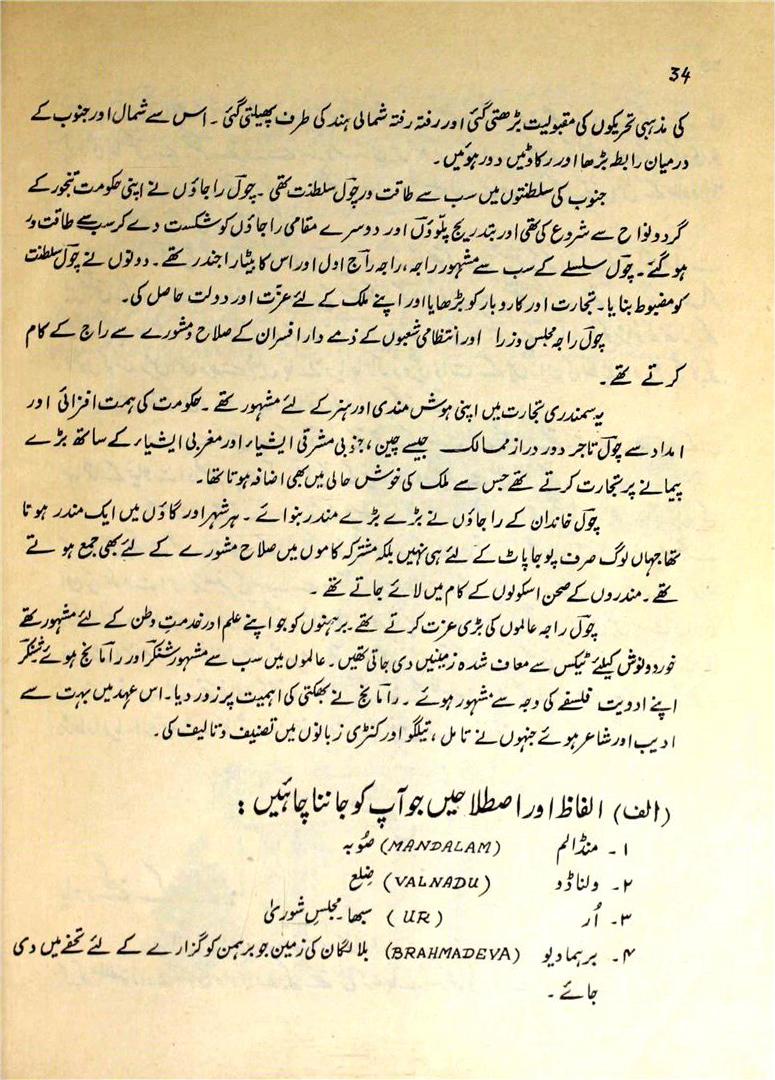 34
کی مذہبی تحریکوں کی مقبولیت بڑھتی گئی اور رفتہ رفتہ شمالی ہند کی طرف پھیلتی گئی ۔ اس سے شمال اور جنوب کے
درمیان رابطہ بڑھا اور رکاوٹیں دور ہوئیں ۔
جنوب کی سلطنتوں میں سب سے طاقت ور چول سلطنت تھی ۔ چول راجاؤں نے اپنی حکومت تنجور کے
گرد و نواح سے شروع کی تھی اور بتدریج پلّوؤں اور دوسرے مقامی راجاؤں کو شکست دے کر سب سے طاقت ور
ہو گئے ۔ چول سلسلے کے سب سے مشہور راجہ ، راجہ راج اول اور اس کا بیٹا راجندر تھے ۔ دونوں نے چول سلطنت
کو مضبوط بنایا ۔ تجارت اور کاروبار کو بڑھایا اور اپنے ملک کے لئے عزّت اور دولت حاصل کی ۔
چول راجہ مجلس وزرا اور انتظامی شعبوں کے ذمے دار افسران کے صلاح و مشورے سے راج کے کام
کرتے تھے ۔
یہ سمندری تجارت میں اپنی ہوش مندی اور ہنر کے لئے مشہور تھے ۔ حکومت کی ہمت افزائی اور
امداد سے چول تاجر دور دراز ممالک جیسے چین ، جنوبی مشرقی ایشیاء اور مغربی ایشیاء کے ساتھ بڑے
پیمانے پر تجارت کرتے تھے جس سے ملک کی خوش حالی میں بھی اضافہ ہوتا تھا ۔
چول خاندان کے راجاؤں نے بڑے بڑے مندر بنوائے ۔ ہر شہر اور گاؤں میں ایک مندر ہوتا
تھا جہاں لوگ صرف پوجا پاٹ کے لئے ہی نہیں بلکہ مشترکہ کاموں میں صلاح مشورے کے لئے بھی جمع ہوتے
تھے ۔ مندروں کے صحن اسکولوں کے کام میں لائے جاتے تھے ۔
چول راجہ عالموں کی بڑی عزت کرتے تھے ۔ برہمنوں کو جو اپنے علم اور خدمتِ وطن کے لئے مشہور تھے
خورد و نوش کیلئے ٹیکس سے معاف شدہ زمینیں دی جاتی تھیں ۔ عالموں میں سب سے مشہور شنکر اور رامانج ہوئے شنکر
اپنے ادویت فلسفے کی وجہ سے مشہور ہوئے ۔ رامانج نے بھکتی کی اہمیت پر زور دیا ۔ اس عہد میں بہت سے
ادیب اور شاعر ہوئے جنہوں نے تامل ، تیلگو اور کنڑی زبانوں میں تصنیف و تالیف کی ۔
(الف) الفاظ اور اصطلاحیں جو آپ کو جاننا چاہئیں :
۱ ۔ منڈالم (MANDALAM) صُوبہ
۲ ۔ ولناڈو (VALNADU) ضِلع
۳ ۔ اُر (UR) سبھا ۔ مجلسِ شوریٰ
۴ ۔ برہمادیو (BRAHMADEVA) بلا لگان کی زمین جو برہمن کو گزارے کے لئے تحفے میں دی
جائے ۔